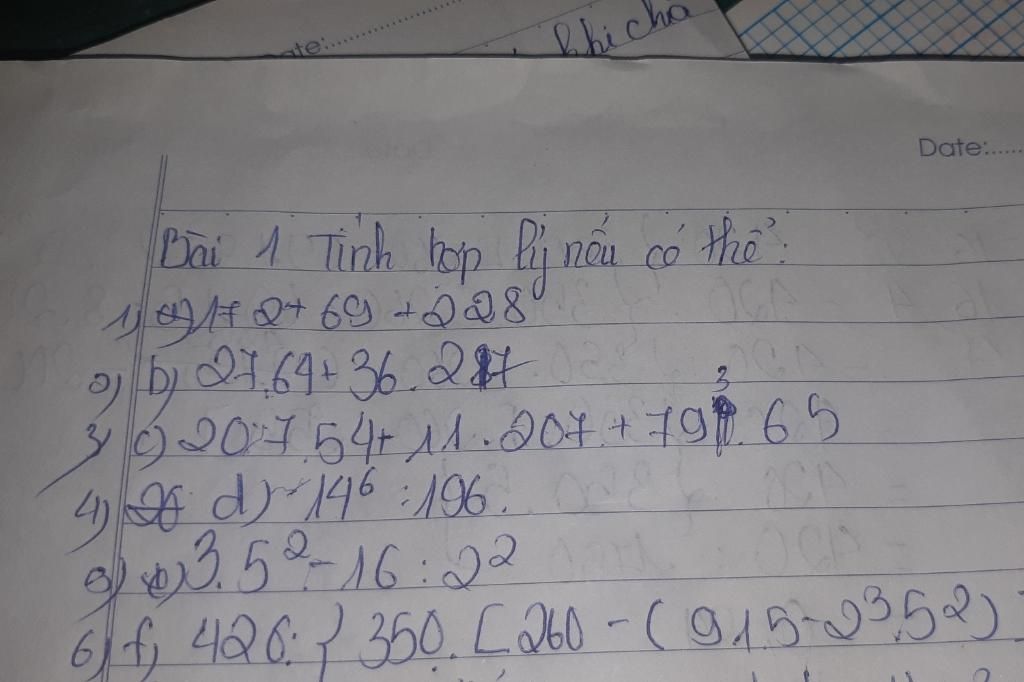 ate:
khi cho
Date:......
Bài 1 Tính hợp lý nếu có thể:
1) a) 172 + 69 + 228
2) b) 27.64 + 36.27
3) c) 207.54 + 11.207 + 793.65
4) d) 14⁶ : 196.
5) e) 3.5² - 16 : 2²
6) f) 420: } 350. [260 - (91.5 - 2³.5²)